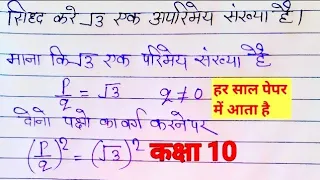 सिद्ध करे √3 एक अपरिमेय संख्या है।
माना कि √3 एक परिमेय संख्या है
p/q = √3 q ≠ 0
हर साल पेपर
में आता है
दोनो पक्षो का वर्ग करने पर
(p/q)² = (√3)²
कक्षा 10